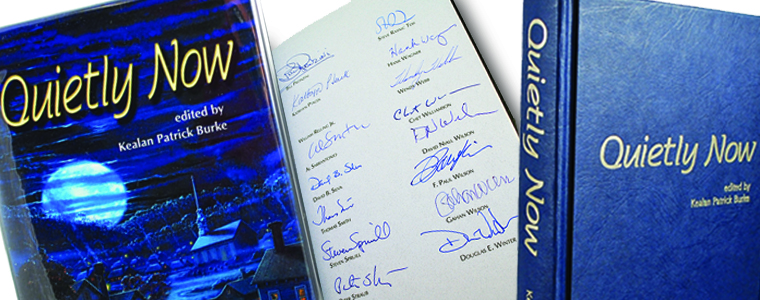 Quietly Now
edited by
Kealan Patrick Burke
Steve Rasnic Tem
Hank Wagner
Kathryn Ptacek
Wendy Webb
William Relling Jr.
Chet Williamson
Al Sarrantonio
David Niall Wilson
David B. Silva
F. Paul Wilson
Thomas Smith
Gahan Wilson
Steven Spruill
Douglas E. Winter
Peter Straub
Quietly Now
K
Quietly Now
edited by
Kealan Patrick Burke